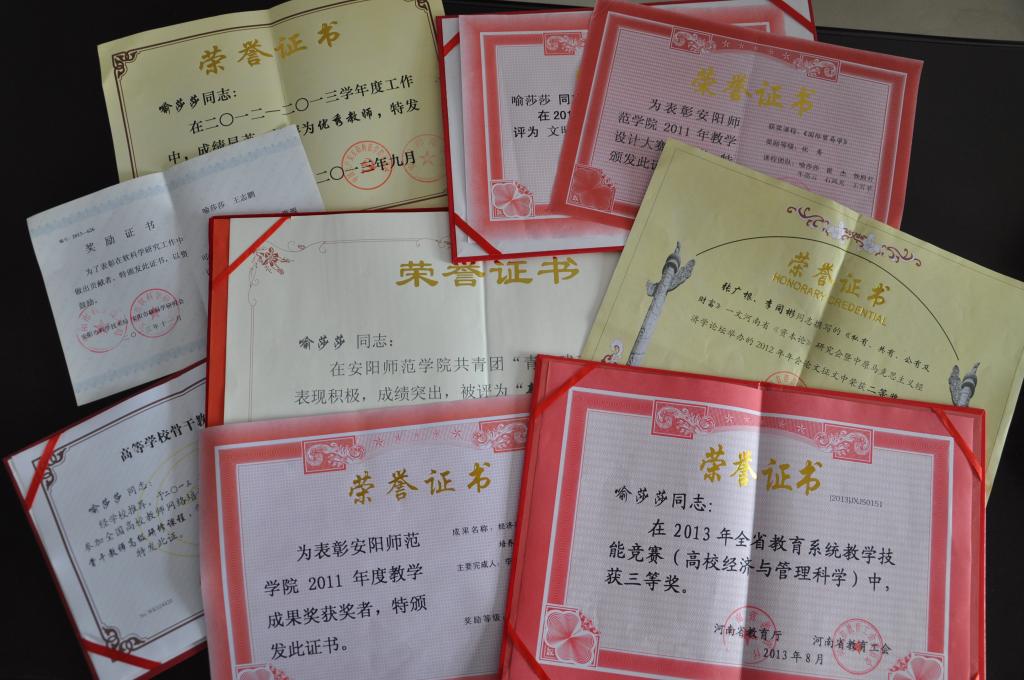 荣誉证书
喻莎莎同志：
在二〇一二—二〇一三学年度工作
中，成绩显著 为优秀教师，特发
二〇一三年九月
喻莎莎 同
在 201
评为 文明
荣誉证书
为表彰安阳师
范学院 2011 年教学
设计大赛 特
颁发此证
获奖课程：《国际贸易学》
奖励等级：优 秀
课程团队：喻莎莎
喻莎莎 王志鹏
编号：2013-026
奖励证书
为了表彰在软科学研究工作中
做出贡献者，特颁发此证书，以资
鼓励。
荣誉证书
喻莎莎 同志：
在安阳师范学院共青团“青
表现积极，成绩突出，被评为“
荣誉证书
HONORARY CREDENTIAL
张广根、李闯彬同志撰写的《私有、共有、公有及
财富》一文河南省《资本论》研究会暨中原马克思主义经
济学论坛举办的 2012 年年会论文征文中荣获二等奖
高等学校骨干教
喻莎莎 同志：
经学校推荐，于二〇一三
参加全国高校教师网络培
青年教师高级研修课程，
特发此证。
荣誉证书
为表彰安阳师范
学院 2011 年度教学
成果奖获奖者，特颁
发此证书。
成果名称：经济
培养
主要完成人：李
奖励等级：
荣誉证书
[2013]JXJS0151]
喻莎莎同志：
在 2013 年全省教育系统教学技
能竞赛（高校经济与管理科学）中，
获三等奖。
河南省教育厅 河南省教育工会
2013 年 8 月